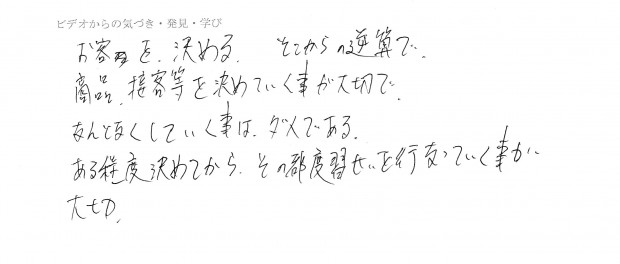 ビデオからの気づき・発見・学び
お客を、決める。 そこからの逆算で、
商品、接客等を決めていく事が大切で、
なんとなくしていく事は、ダメである。
ある程度決めてから、その都度習せいを行なっていく事が
大切。